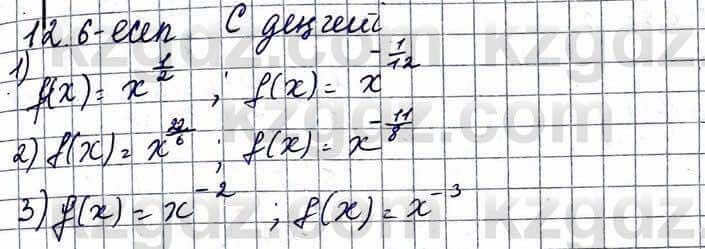 12.6-есеп С деңгейі
1) f(x) = x^{1/2} ; f(x) = x^{-1/12}
2) f(x) = x^{22/6} ; f(x) = x^{-11/8}
3) f(x) = x^{-2} ; f(x) = x^{-3}